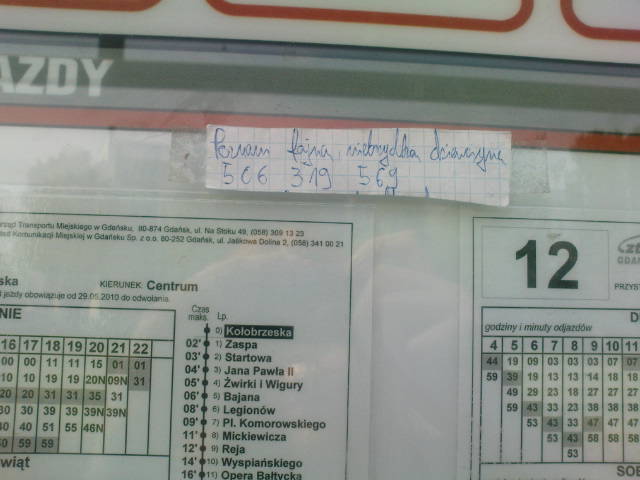 AZDY
Poznam fajną, niebrzydką dziewczynę
506 319 569
rząd Transportu Miejskiego w Gdańsku, 80-874 Gdańsk, ul. Na Stoku 49, (058) 309 13 23
ład Komunikacji Miejskiej w Gdańsku Sp. z o.o. 80-252 Gdańsk, ul. Jaśkowa Dolina 2, (058) 341 00 21
ska KIERUNEK: Centrum
jazdy obowiązuje od 29.05.2010 do odwołania.
NIE
16 17 18 19 20 21 22
00 00 11 11 15 01 01
10 10 19 19 20N 09N 31
20 20 31 31 35 31
30 30 39 39 39N 39N
40 40 51 55 46N
50 59 59
wiąt
Czas maks. Lp.
0) Kołobrzeska
02' 1) Zaspa
03' 2) Startowa
04' 3) Jana Pawła II
05' 4) Żwirki i Wigury
06' 5) Bajana
08' 6) Legionów
09' 7) Pl. Komorowskiego
11' 8) Mickiewicza
12' 9) Reja
14' 10) Wyspiańskiego
16' 11) Opera Bałtycka
12
zt
GDA
PRZYST
D
godziny i minuty odjazdów
4 5 6 7 8 9 10 11
44 19 09 03 03 03 07 07
59 39 19 13 13 14 18 18
49 29 23 18 27 27 27
59 43 33 23 38 38 38
53 43 33 47 47 47
53 43 58 58 58
53
SOB